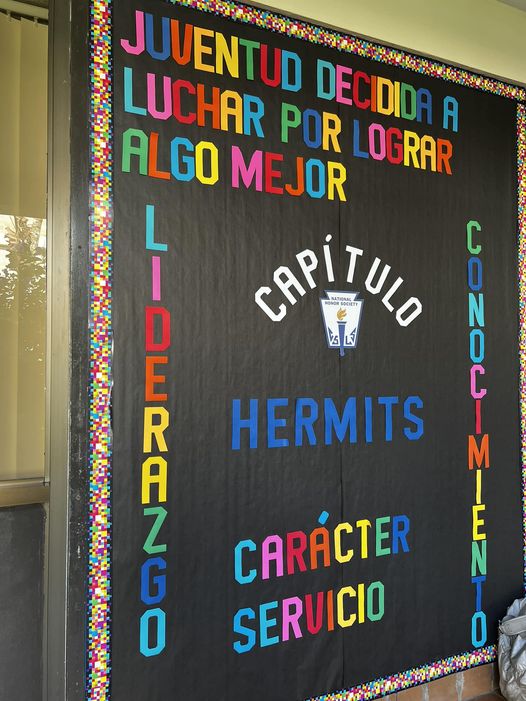 JUVENTUD DECIDIDA A
LUCHAR POR LOGRAR
ALGO MEJOR
LIDERAZGO
CAPÍTULO
NATIONAL
HONOR SOCIETY
HERMITS
CARÁCTER
SERVICIO
CONOCIMIENTO